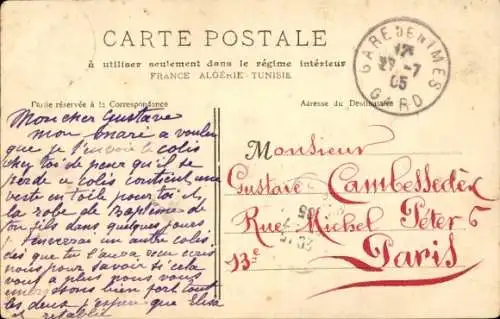 CARTE POSTALE
à utiliser seulement dans le régime intérieur
FRANCE ALGÉRIE-TUNISIE
GARE DE NIMES
12
27-7
05
GARD
Partie réservée à la Correspondance
Adresse du Destinataire
Mon cher Gustave
mon mari a voulu
que je t'envoie le colis
chez toi de peur qu'il se
perde ce colis contient une
veste en toile pour toi et
la robe de Baptême de
ton fils dans quelques jours
j'enverrai un autre colis
dès que tu l'auras reçu écris
nous pour savoir si cela
vous a plu nous vous
embrassons bien fort tout
les deux j'espère que Elisa
est rétablie
Monsieur
Gustave Cambessedès
Rue Michel Péter 6
13e Paris